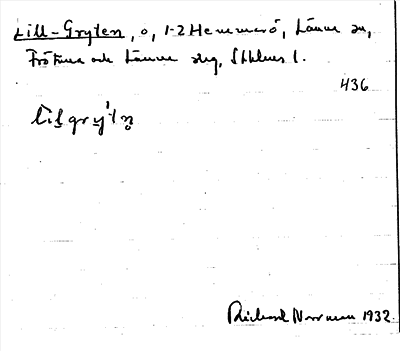 Lill-Gryten, ö, 1-2 Hemmarö, Länna sn,
Frötuna och Länna skg, Sthlms l.
436
lilgry'tn
Rickard Norrman 1932.